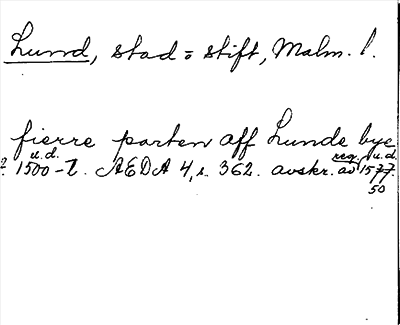 Lund, stad o stift, Malm. l.
fierre parten aff Lunde bye
u.d. reg. u.d.
? 1500-t. AEDA 4, s. 362. avskr. av 1577.
50